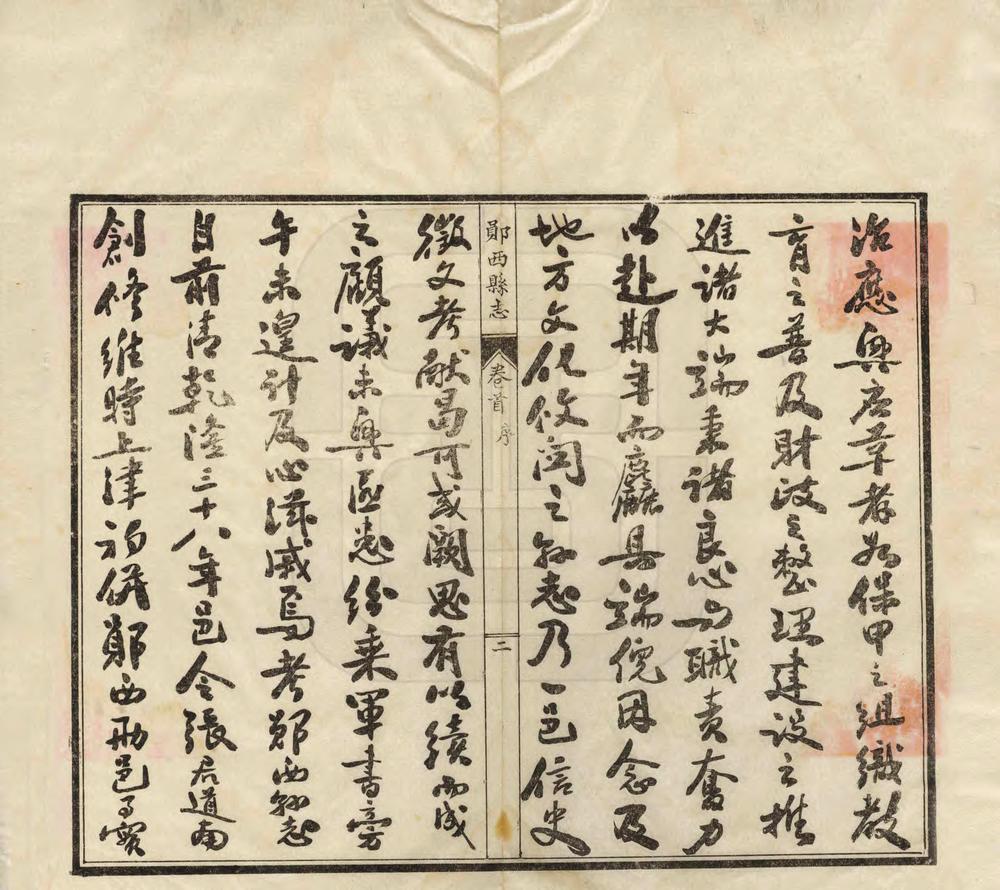 治應興應革者如保甲之組織教
育之普及財政之整理建設之推
進諸大端秉諸良心與職責奮力
以赴期年而麤具端倪因念及
地方文化攸關之縣志乃一邑信史
鄖西縣志
卷首 序
二
徵文考獻曷可或闕思有以續而成
之顧議未興匪患紛乘軍書旁
午未遑計及心滋戚焉考鄖西縣志
自前清乾隆三十八年邑令張君道南
創修維時上津初併鄖西而邑事實